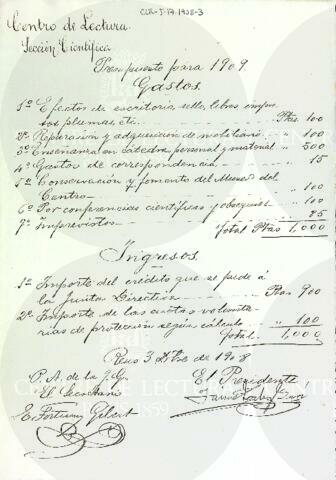 CLR-I-17-1908-3
Centro de Lectura.
Sección Científica
Presupuesto para 1909.
Gastos.
1º Efectos de escritorio, sello, libros impre
sos plumas, etc. Ptas 100
2º Reparación y adquisición de mobiliario " 100
3º Enseñanzas en cátedra, personal y material " 500
4º Gastos de correspondencia " 15
5º Conservación y fomento del Museo del
Centro " 100
6º Por conferencias científicas y obsequios " 100
7º Imprevistos " 85
Total Ptas 1,000
Ingresos.
1º Importe del crédito que se pide á
la Junta Directiva Ptas 900
2º Importe de las cuotas volunta-
rias de protección según cálculo " 100
Total. 1,000
Reus 3 Dbre de 1908
P. A. de la J. C.
El Secretario
E. Fortuny Gibert
El Presidente
CENTRE DE LECTURA
1859